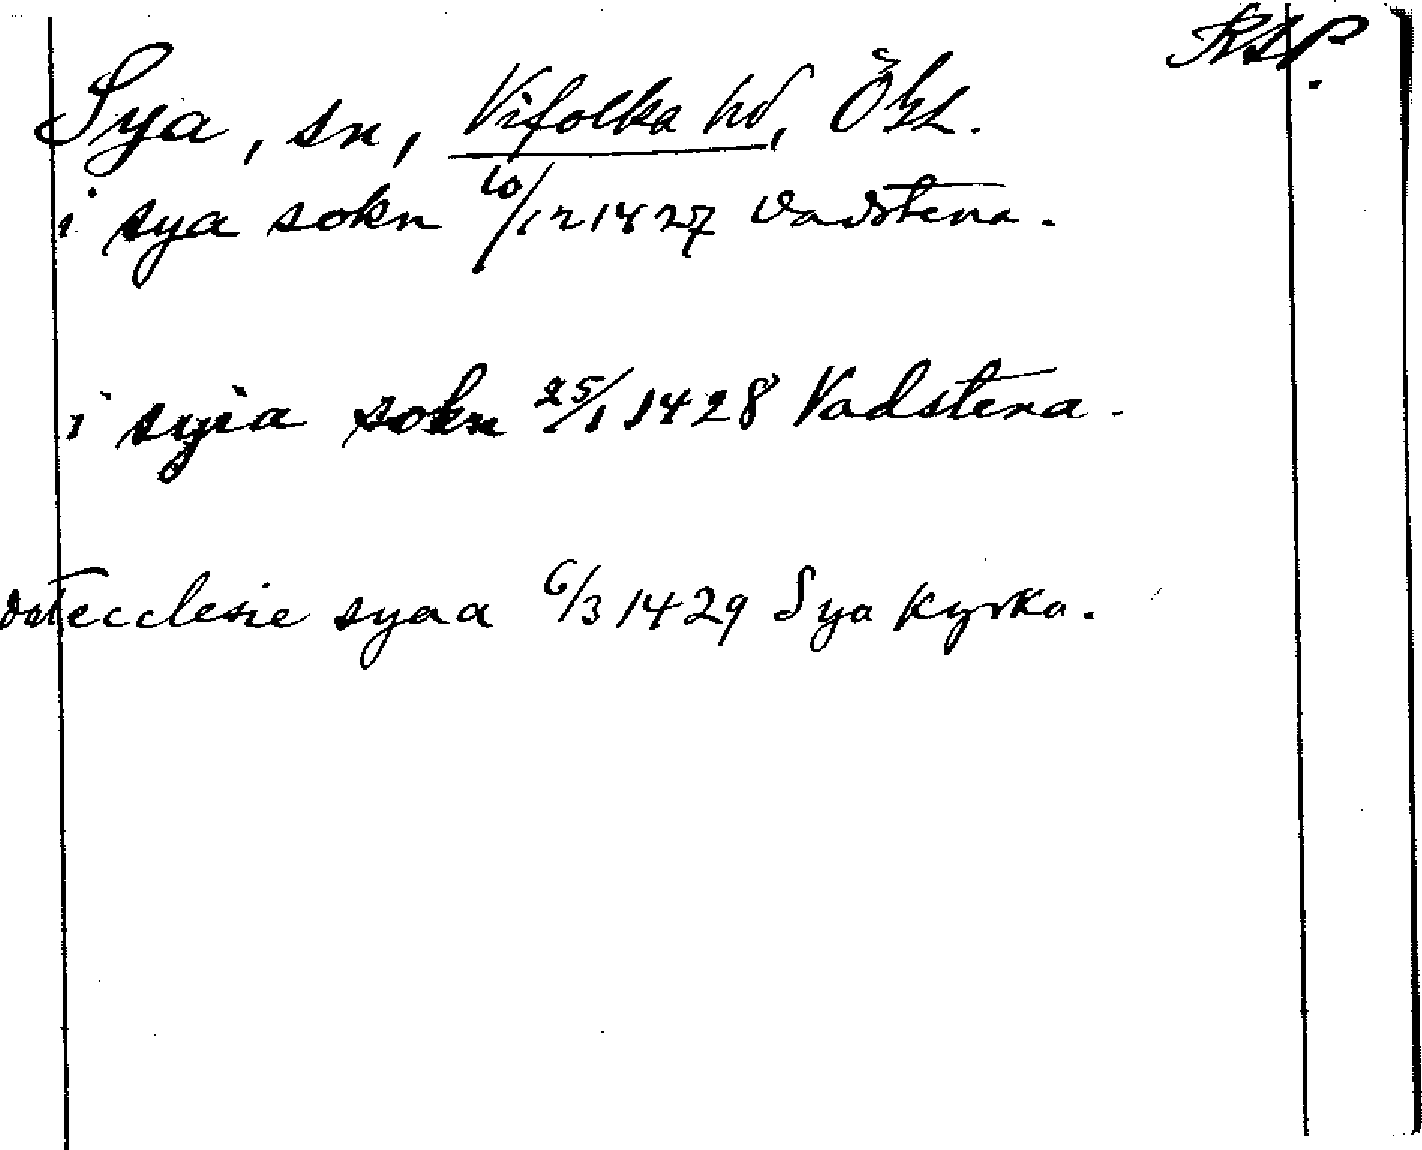 RAP.
Sya, sn, Vifolka hd, Ögl.
i sya sokn 10/12 1427 Vadstena.
i syia sokn 25/1 1428 Vadstena.
ecclesie syaa 6/3 1429 Sya kyrka.